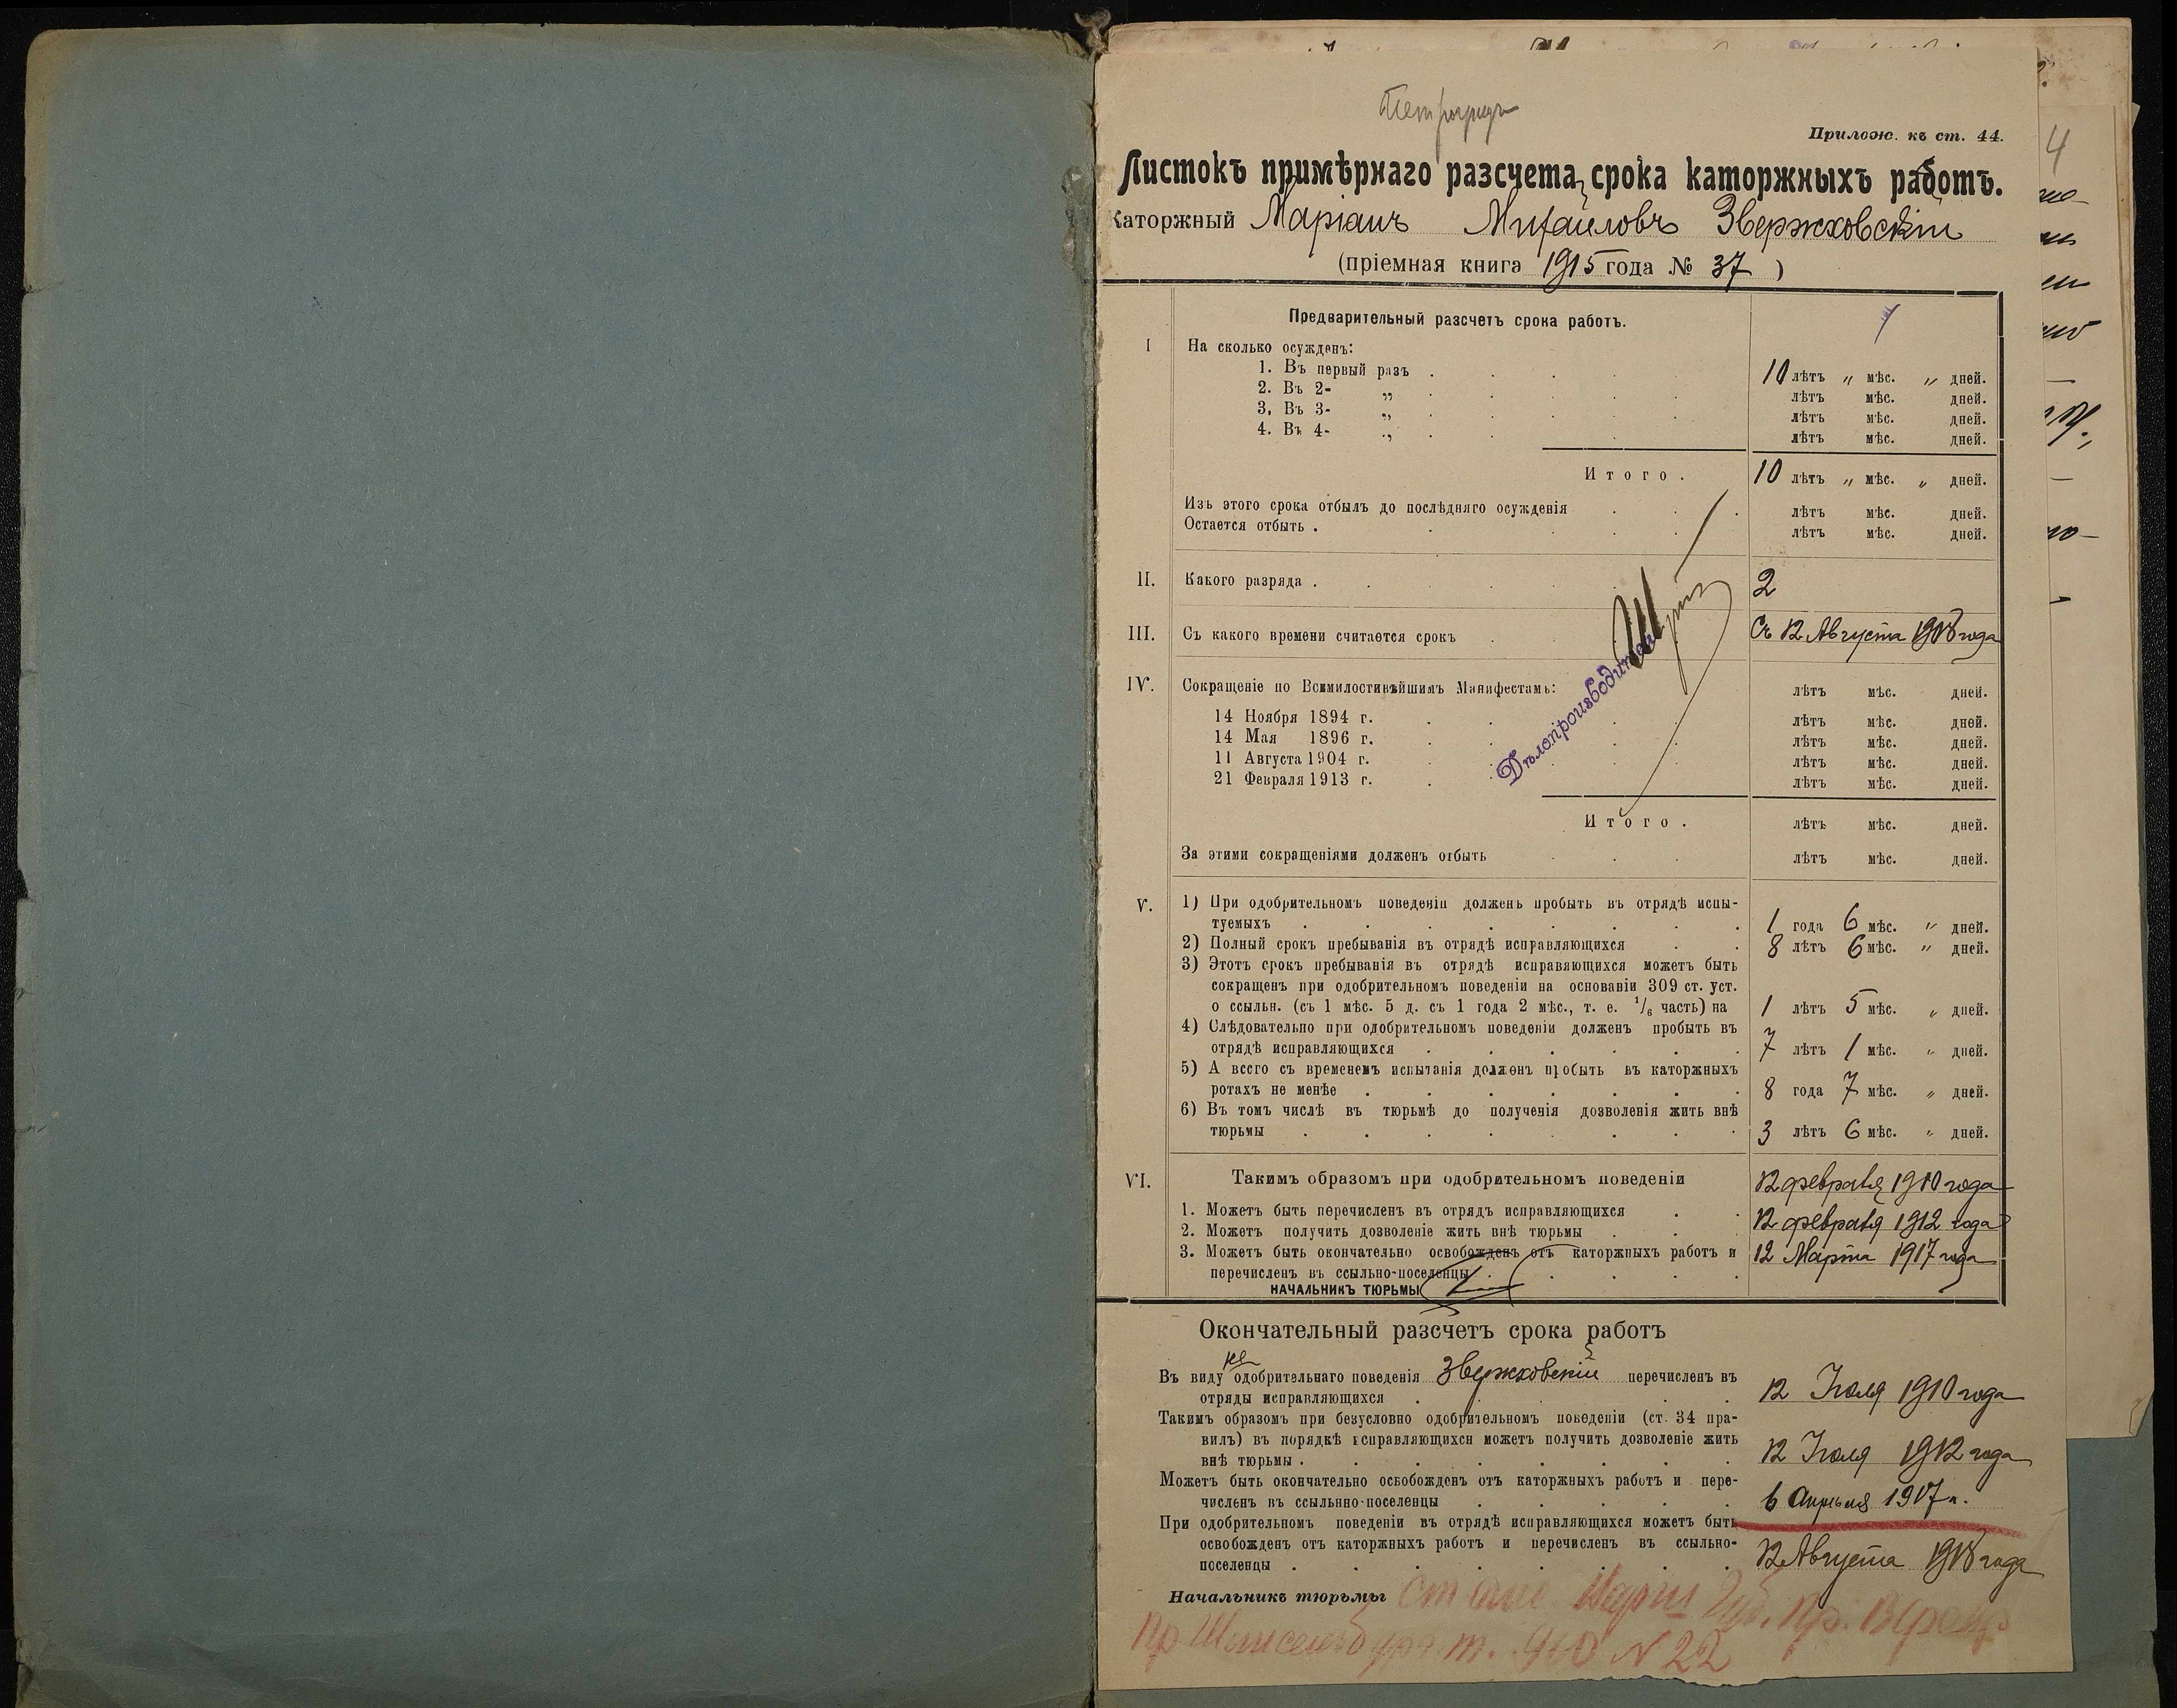 Петроградъ
Прилож. къ ст. 44.
Листокъ примѣрнаго разсчета срока каторжныхъ работъ.
Каторжный Маріанъ Михайловъ Звержховскій
(пріемная книга 1915 года № 37)
Предварительный разсчетъ срока работъ.
I На сколько осужденъ:
1. Въ первый разъ . 10 лѣтъ „ мѣс. „ дней.
2. Въ 2- „ лѣтъ мѣс. дней.
3, Въ 3- „ лѣтъ мѣс. дней.
4. Въ 4- „ лѣтъ мѣс. дней.
Итого. 10 лѣтъ „ мѣс. „ дней.
Изъ этого срока отбылъ до послѣдняго осужденія лѣтъ мѣс. дней.
Остается отбыть . лѣтъ мѣс. дней.
II. Какого разряда . 2
III. Съ какого времени считается срокъ . Съ 12 Августа 1908 года
IV. Сокращеніе по Всемилостивѣйшимъ Манифестамъ: лѣтъ мѣс. дней.
14 Ноября 1894 г. лѣтъ мѣс. дней.
14 Мая 1896 г. лѣтъ мѣс. дней.
11 Августа 1904 г. лѣтъ мѣс. дней.
21 Февраля 1913 г. лѣтъ мѣс. дней.
Дѣлопроизводитель
Итого. лѣтъ мѣс. дней.
За этими сокращеніями долженъ отбыть лѣтъ мѣс. дней.
V. 1) При одобрительномъ поведеніи долженъ пробыть въ отрядѣ испы-
туемыхъ . 1 года 6 мѣс. „ дней.
2) Полный срокъ пребыванія въ отрядѣ исправляющихся . 8 лѣтъ 6 мѣс. „ дней.
3) Этотъ срокъ пребыванія въ отрядѣ исправяющихся можетъ быть
сокращенъ при одобрительномъ поведеніи на основаніи 309 ст. уст.
о ссыльн. (съ 1 мѣс. 5 д. съ 1 года 2 мѣс., т. е. 1/6 часть) на 1 лѣтъ 5 мѣс. „ дней.
4) Слѣдовательно при одобрительномъ поведеніи долженъ пробыть въ
отрядѣ исправляющихся . 7 лѣтъ 1 мѣс. „ дней.
5) А всего съ временемъ испытанія долженъ пробыть въ каторжныхъ
ротахъ не менѣе . 8 года 7 мѣс. „ дней.
6) Въ томъ числѣ въ тюрьмѣ до полученія дозволенія жить внѣ
тюрьмы . 3 лѣтъ 6 мѣс. „ дней.
VI. Такимъ образомъ при одобрительномъ поведеніи 12 февраля 1910 года
1. Можетъ быть перечисленъ въ отрядъ исправляющихся
2. Можетъ получить дозволеніе жить внѣ тюрьмы . 12 февраля 1912 года
3. Можетъ быть окончательно освобожденъ отъ каторжныхъ работъ и 12 Марта 1917 года
перечисленъ въ ссыльно-поселенцы .
НАЧАЛЬНИКЪ ТЮРЬМЫ
Окончательный разсчетъ срока работъ
не
Въ виду одобрительнаго поведенія Звержховскій перечисленъ въ
отряды исправляющихся . 12 Іюля 1910 года
Такимъ образомъ при безусловно одобрительномъ поведеніи (ст. 34 пра-
вилъ) въ порядкѣ исправляющихся можетъ получить дозволеніе жить
внѣ тюрьмы . 12 Іюля 1912 года
Можетъ быть окончательно освобожденъ отъ каторжныхъ работъ и пере-
численъ въ ссыльнно-поселенцы . 6 Апрѣля 1917 г.
При одобрительномъ поведеніи въ отрядѣ исправляющихся можетъ быть
освобожденъ отъ каторжныхъ работъ и перечисленъ въ ссыльно-
поселенцы . 12 Августа 1918 года
Начальникъ тюрьмы
№ 22
4